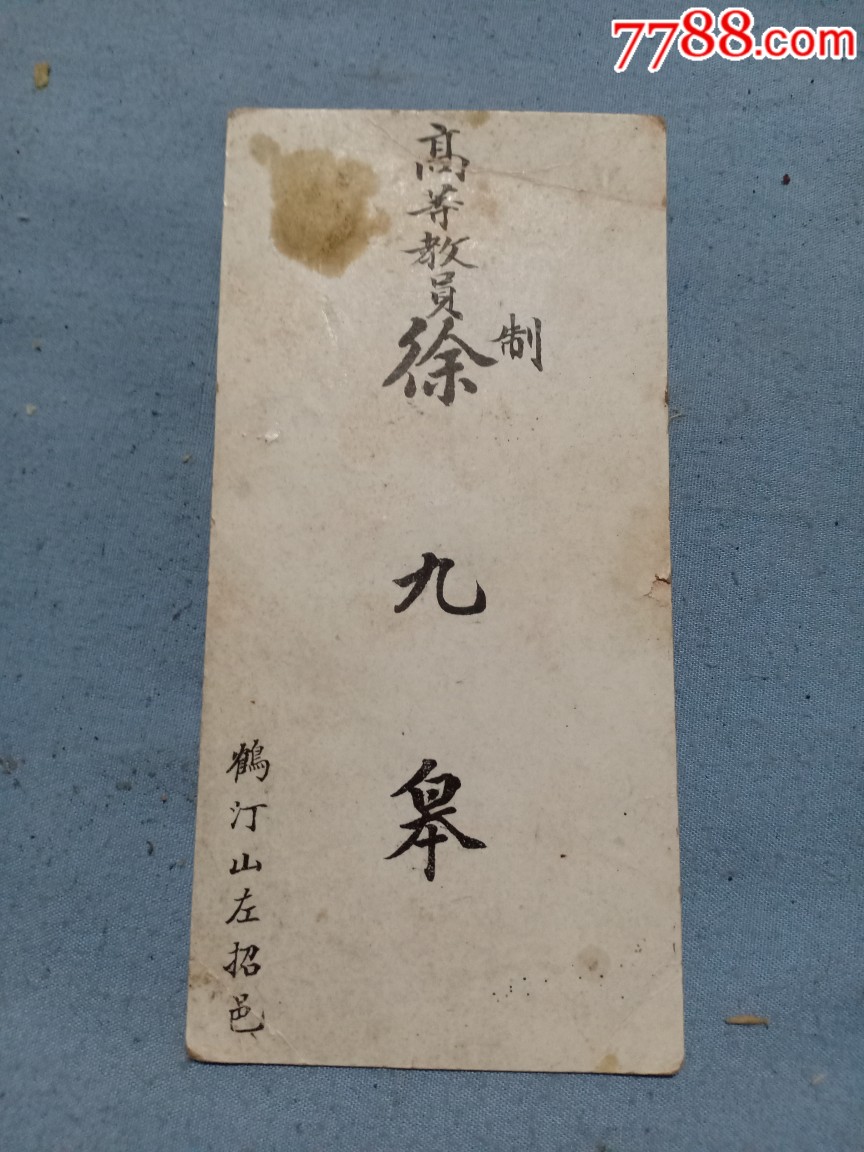 7788.com
制
高等教員徐九皋
鶴汀山左招邑